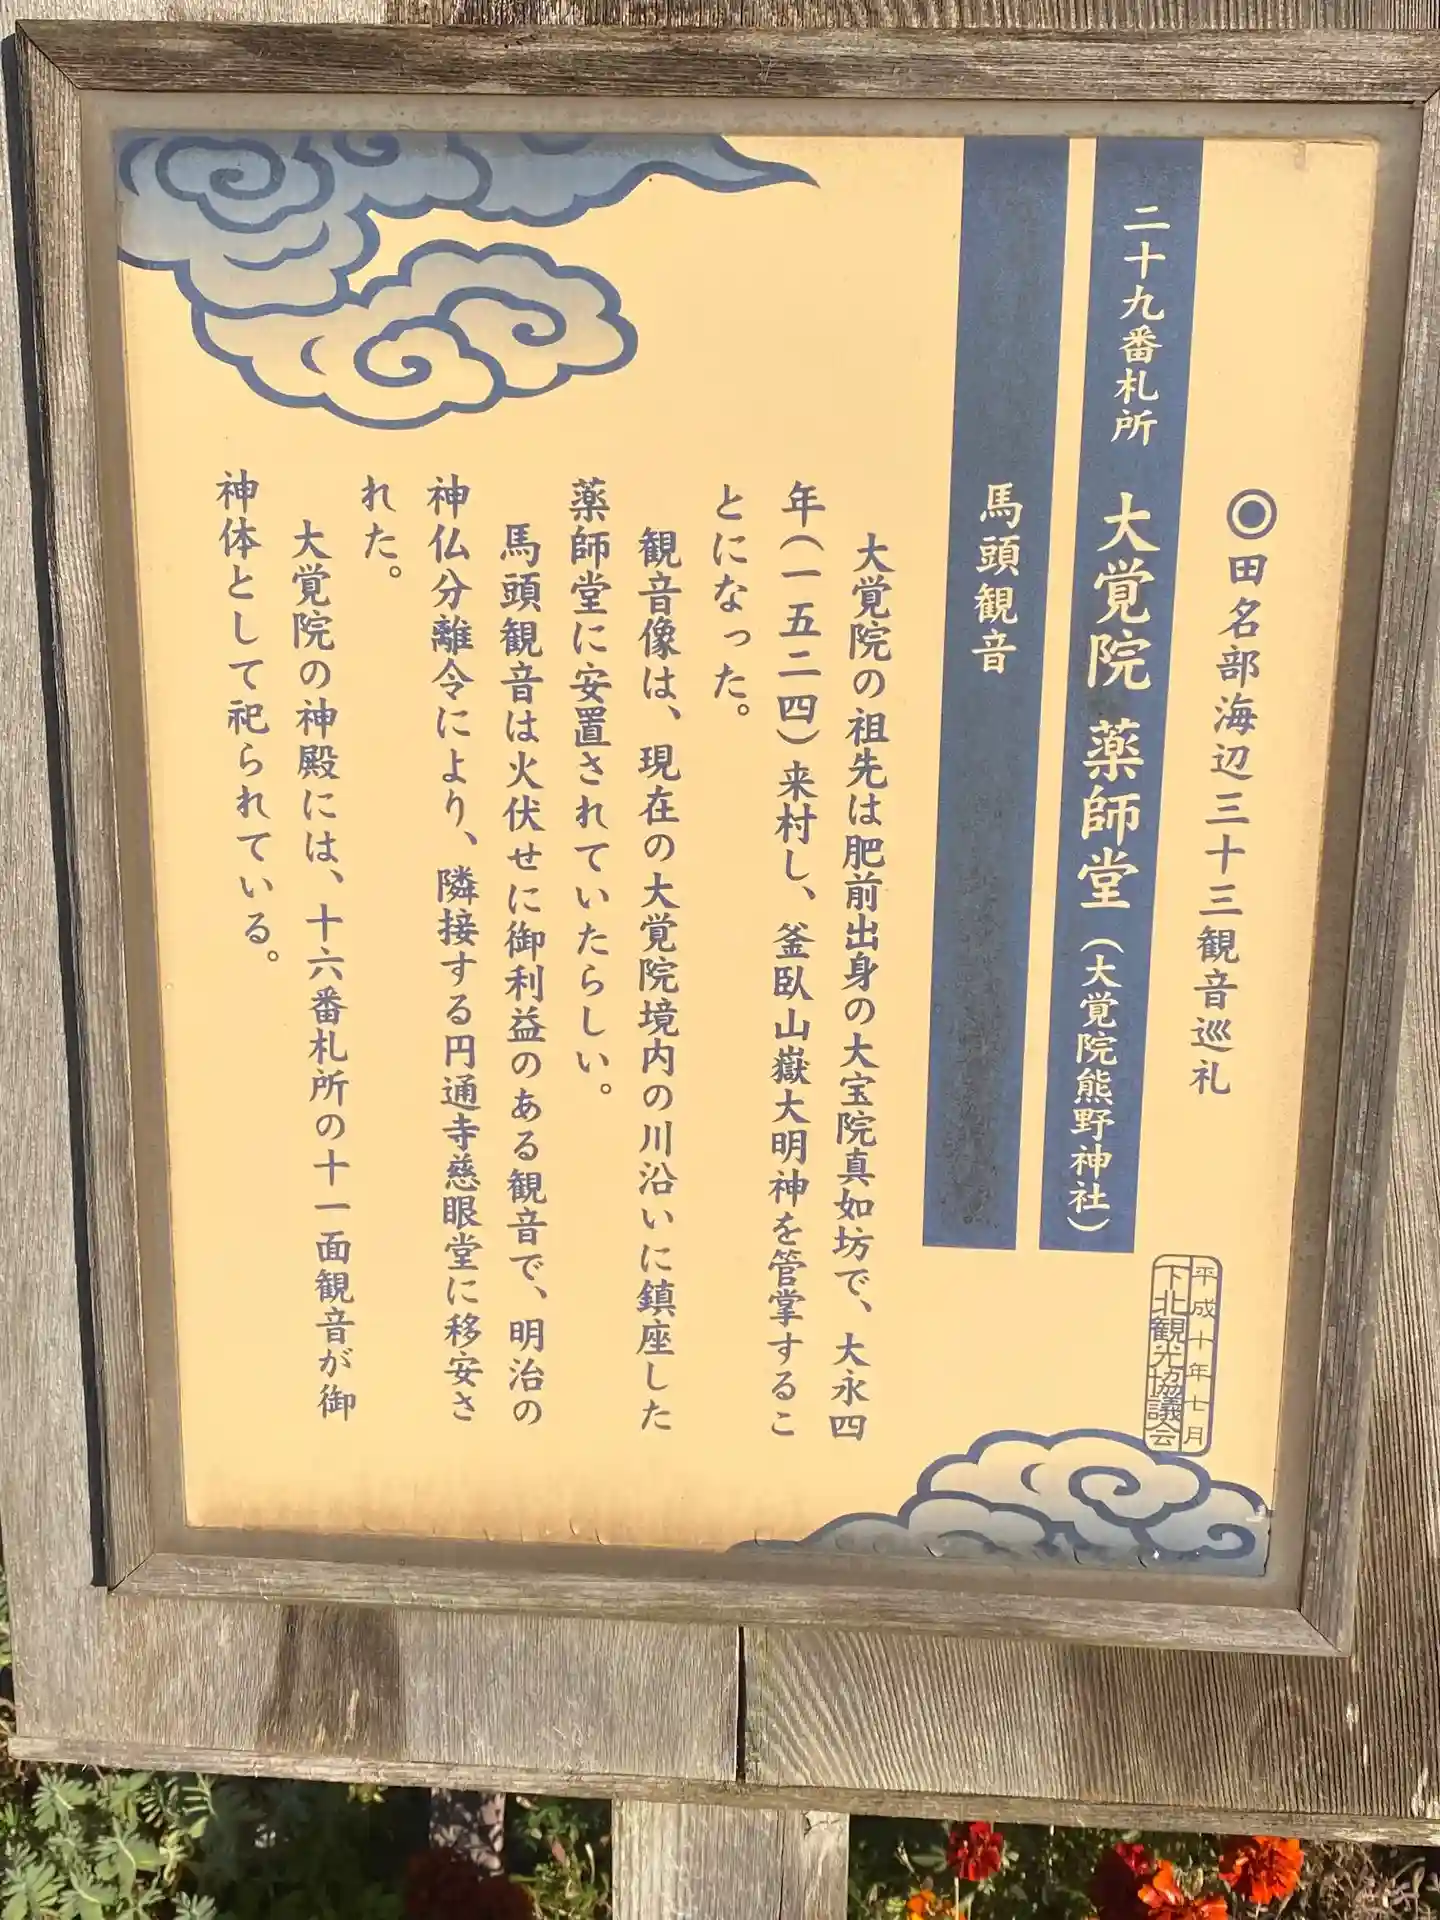 ◎田名部海辺三十三観音巡礼
二十九番札所 大覚院 薬師堂(大覚院熊野神社)
馬頭観音
平成十年七月
下北観光協議会
大覚院の祖先は肥前出身の大宝院真如坊で、大永四
年(一五二四)来村し、釜臥山嶽大明神を管掌するこ
とになった。
観音像は、現在の大覚院境内の川沿いに鎮座した
薬師堂に安置されていたらしい。
馬頭観音は火伏せに御利益のある観音で、明治の
神仏分離令により、隣接する円通寺慈眼堂に移安さ
れた。
大覚院の神殿には、十六番札所の十一面観音が御
神体として祀られている。